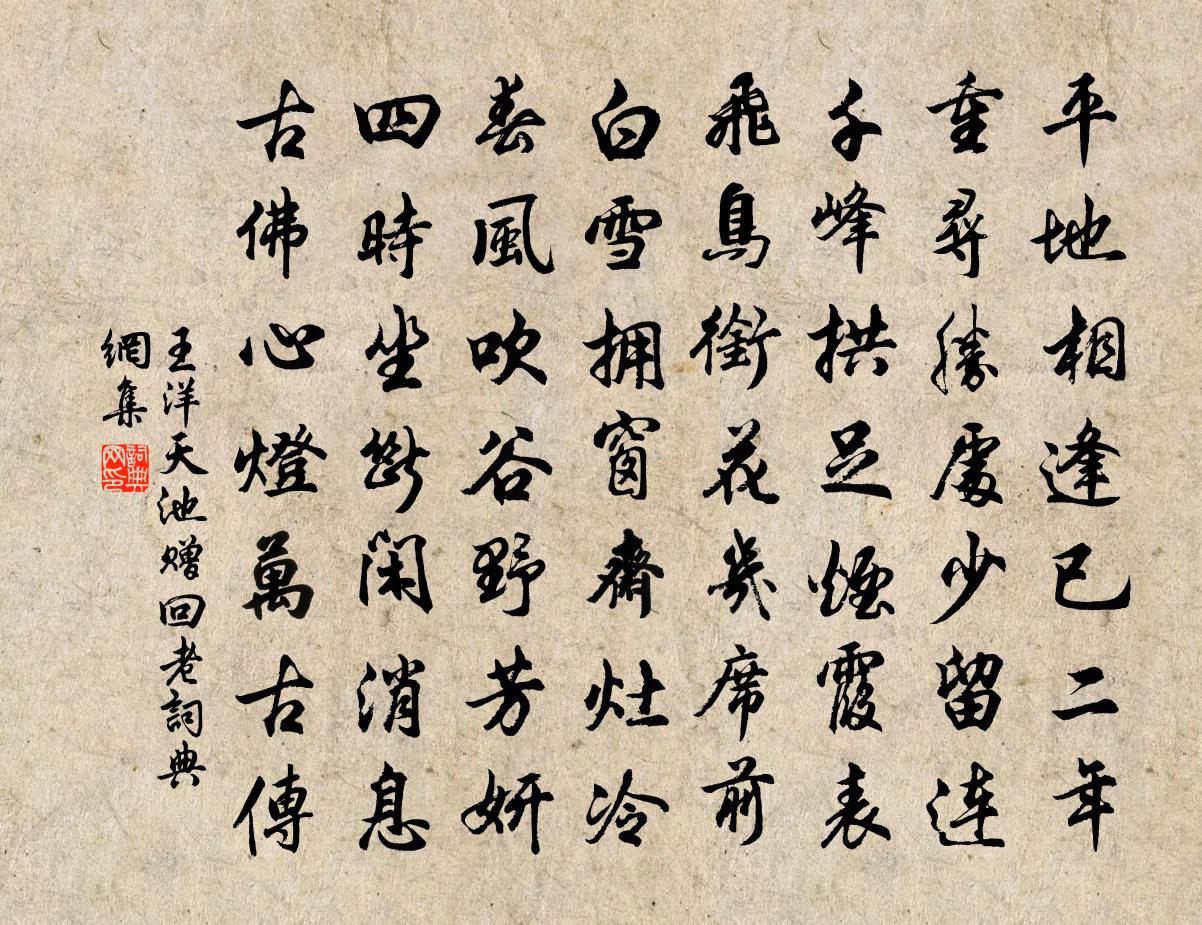 平地相逢已二年
重尋勝處少留連
千峰拱足煙霞表
飛鳥銜花几席前
白雪拥窗齋灶冷
春風吹谷野芳妍
四時坐斷閑消息
古佛心燈萬古傳
王洋天池赠回老詞典
網集
詞典
网印